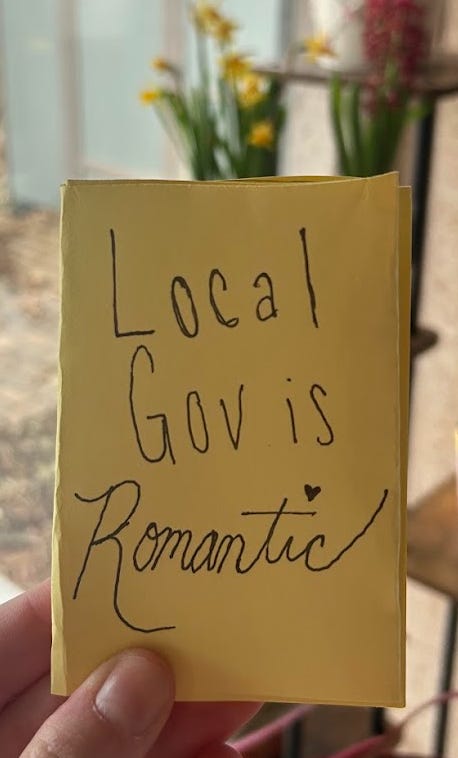 Local
Gov is
Romantic